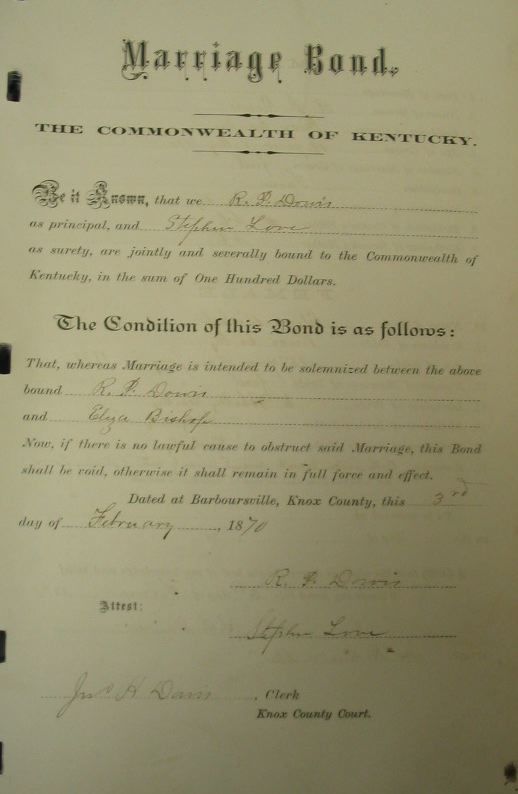 Marriage Bond.
THE COMMONWEALTH OF KENTUCKY.
Be it Known, that we R. P. Dowis
as principal, and Stephen Love
as surety, are jointly and severally bound to the Commonwealth of
Kentucky, in the sum of One Hundred Dollars.
The Condition of this Bond is as follows:
That, whereas Marriage is intended to be solemnized between the above
bound R. P. Dowis
and Eliza Bishop
Now, if there is no lawful cause to obstruct said Marriage, this Bond
shall be void, otherwise it shall remain in full force and effect.
Dated at Barboursville, Knox County, this 3rd
day of February, 1870
R. P. Dowis
Attest:
Stephen Love
H Davis, Clerk
Knox County Court.